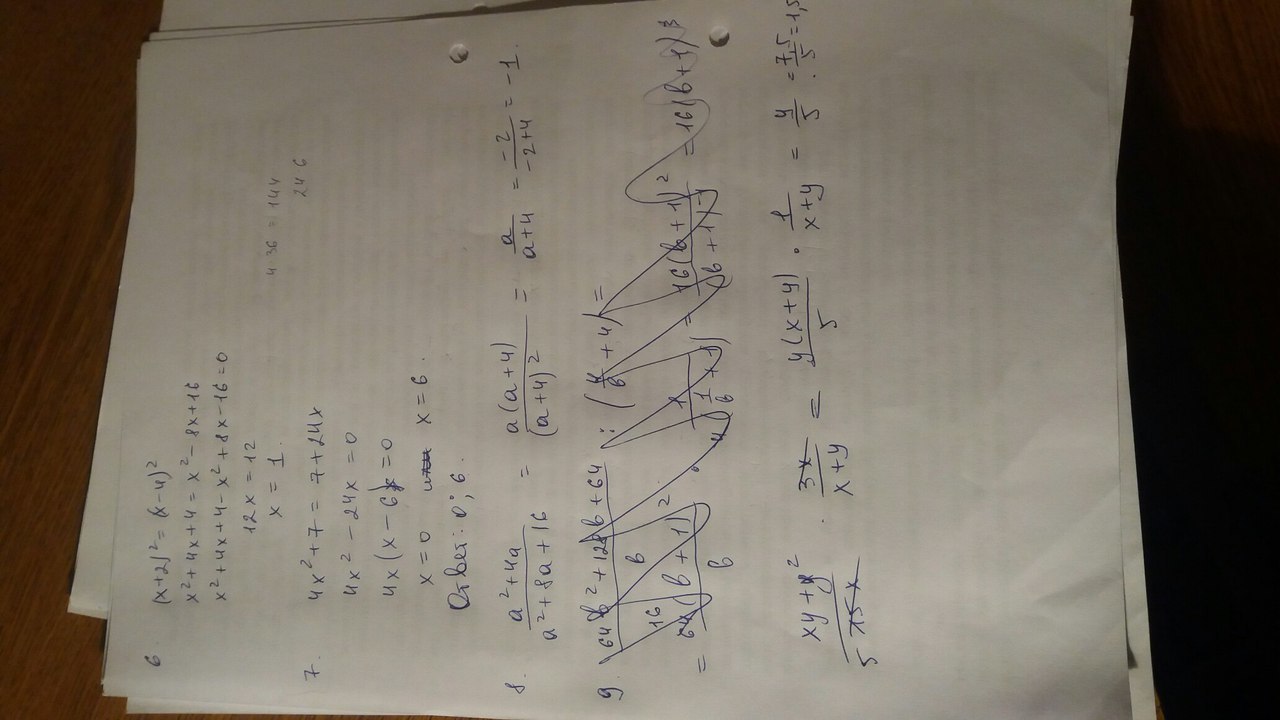 6 (x+2)² = (x-4)²
x² + 4x + 4 = x² - 8x + 16
x² + 4x + 4 - x² + 8x - 16 = 0
12x = 12
x = 1.
4 36 = 144
24 6
7. 4x² + 7 = 7 + 24x
4x² - 24x = 0
4x(x - 6) = 0
x = 0 или x = 6.
Ответ: 0; 6.
8. a² + 4a / a² + 8a + 16 = a(a+4) / (a+4)² = a / a+4 = -2 / -2+4 = -1.
9. 64b² + 128b + 64 / b : (4/b + 4) =
= 64(b+1)² / b · = 16(b+1)² / = 16(b+1)
xy + y² / 15x · 3x / x+y = y(x+y) / 5 · 1 / x+y = y / 5 = 7,5 / 5 = 1,5